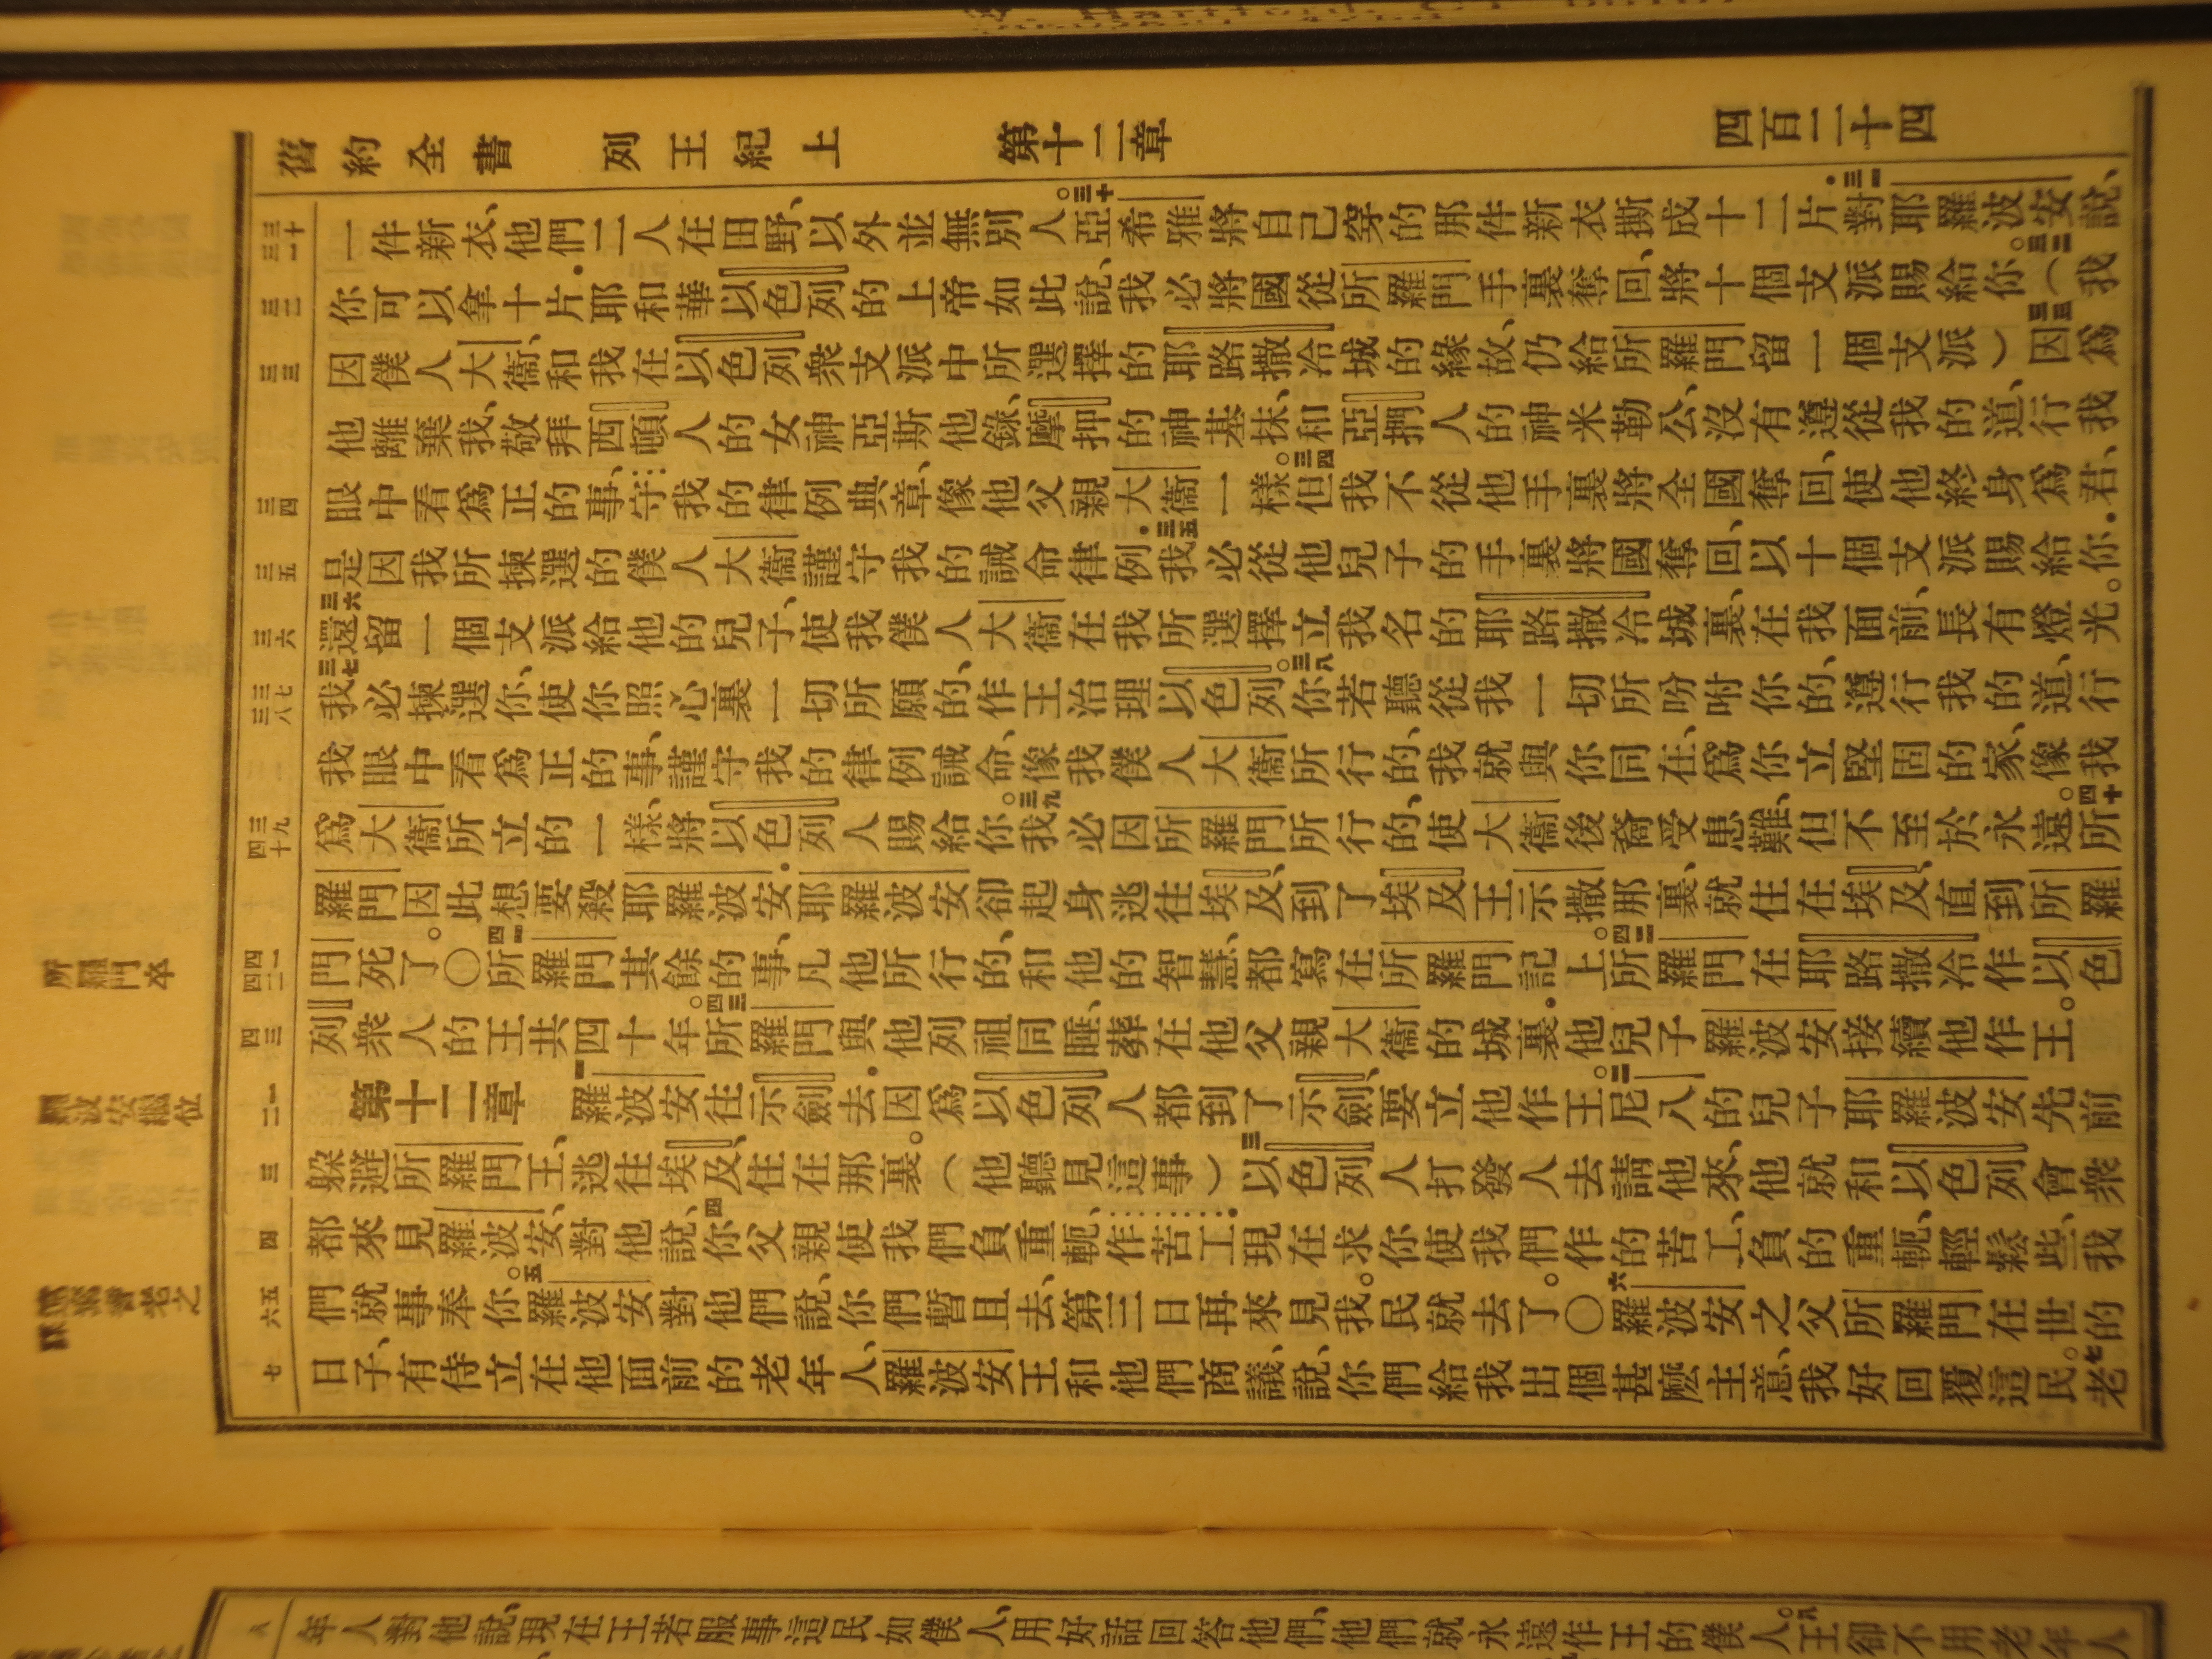 舊約全書 列王紀上 第十二章 四百二十四
三十 三一
一件新衣、他們二人在田野、以外並無別人。三十亞希雅將自己穿的那件新衣撕成十二片．三一對耶羅波安說、
三二
你可以拿十片．耶和華以色列的上帝如此說、我必將國從所羅門手裏奪回、將十個支派賜給你。三二（我
三三
因僕人大衞、和我在以色列衆支派中所選擇的耶路撒冷城的緣故、仍給所羅門留一個支派）三三因爲
他離棄我、敬拜西頓人的女神亞斯他錄、摩押的神基抹、和亞捫人的神米勒公、沒有遵從我的道、行我
三四
眼中看爲正的事、守我的律例典章、像他父親大衞一樣。三四但我不從他手裏將全國奪回、使他終身爲君、
三五
是因我所揀選的僕人大衞謹守我的誡命律例．三五我必從他兒子的手裏將國奪回、以十個支派賜給你．
三六
三六還留一個支派給他的兒子、使我僕人大衞在我所選擇立我名的耶路撒冷城裏、在我面前、長有燈光。
三七 三八
三七我必揀選你、使你照心裏一切所願的、作王治理以色列。三八你若聽從我一切所吩咐你的、遵行我的道、行
我眼中看爲正的事、謹守我的律例誡命、像我僕人大衞所行的、我就與你同在、爲你立堅固的家、像我
三九 四十
爲大衞所立的一樣、將以色列人賜給你。三九我必因所羅門所行的、使大衞後裔受患難、但不至於永遠。四十所
羅門因此想要殺耶羅波安．耶羅波安卻起身逃往埃及、到了埃及王示撒那裏、就住在埃及、直到所羅
四一 四二
門死了。〇四一所羅門其餘的事、凡他所行的、和他的智慧、都寫在所羅門記上。四二所羅門在耶路撒冷作以色
四三
列衆人的王共四十年。四三所羅門與他列祖同睡、葬在他父親大衞的城裏．他兒子羅波安接續他作王。
一 二
第十二章 一羅波安往示劍去．因爲以色列人都到了示劍、要立他作王。二尼八的兒子耶羅波安先前
三
躲避所羅門王、逃往埃及、住在那裏。（他聽見這事）三以色列人打發人去請他來、他就和以色列會衆
四
都來見羅波安、對他說、四你父親使我們負重軛、作苦工．現在求你使我們作的苦工、負的重軛、輕鬆些、我
五 六
們就事奉你。五羅波安對他們說、你們暫且去、第三日再來見我。民就去了。〇六羅波安之父所羅門在世的
七
日子、有侍立在他面前的老年人、羅波安王和他們商議、說、你們給我出個甚麽主意、我好回覆這民。七老
所羅門卒
羅波安繼位
八
年人對他說、現在王若服事這民如僕人、用好話回答他們、他們就永遠作王的僕人。八王卻不用老年人